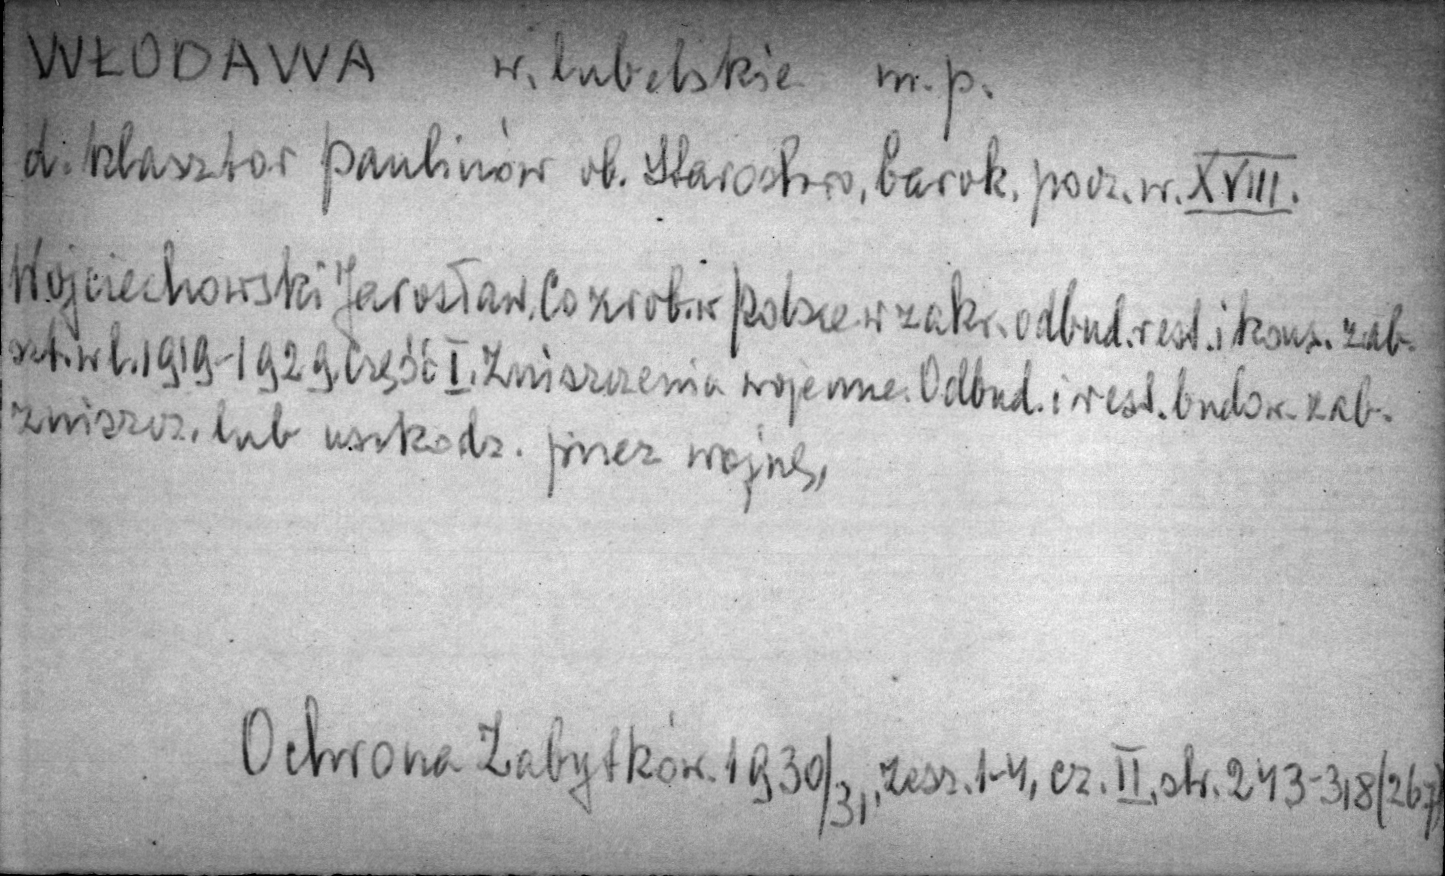 WŁODAWA w. lubelskie m. p.
d. klasztor paulinów ob. Starostwo, barok. pocz. w. XVIII.
Wojciechowski Jarosław. Co zrob. w Polsce w zakr. odbud. rest. i kons. zab.
szt. w l. 1919-1929. Część I. Zniszczenia wojenne. Odbud. i rest. budow. zab.
zniszcz. lub uszkodz. przez wojnę,
Ochrona Zabytków. 1930/31, zesz. 1-4, cz. II, str. 243-318 (267)